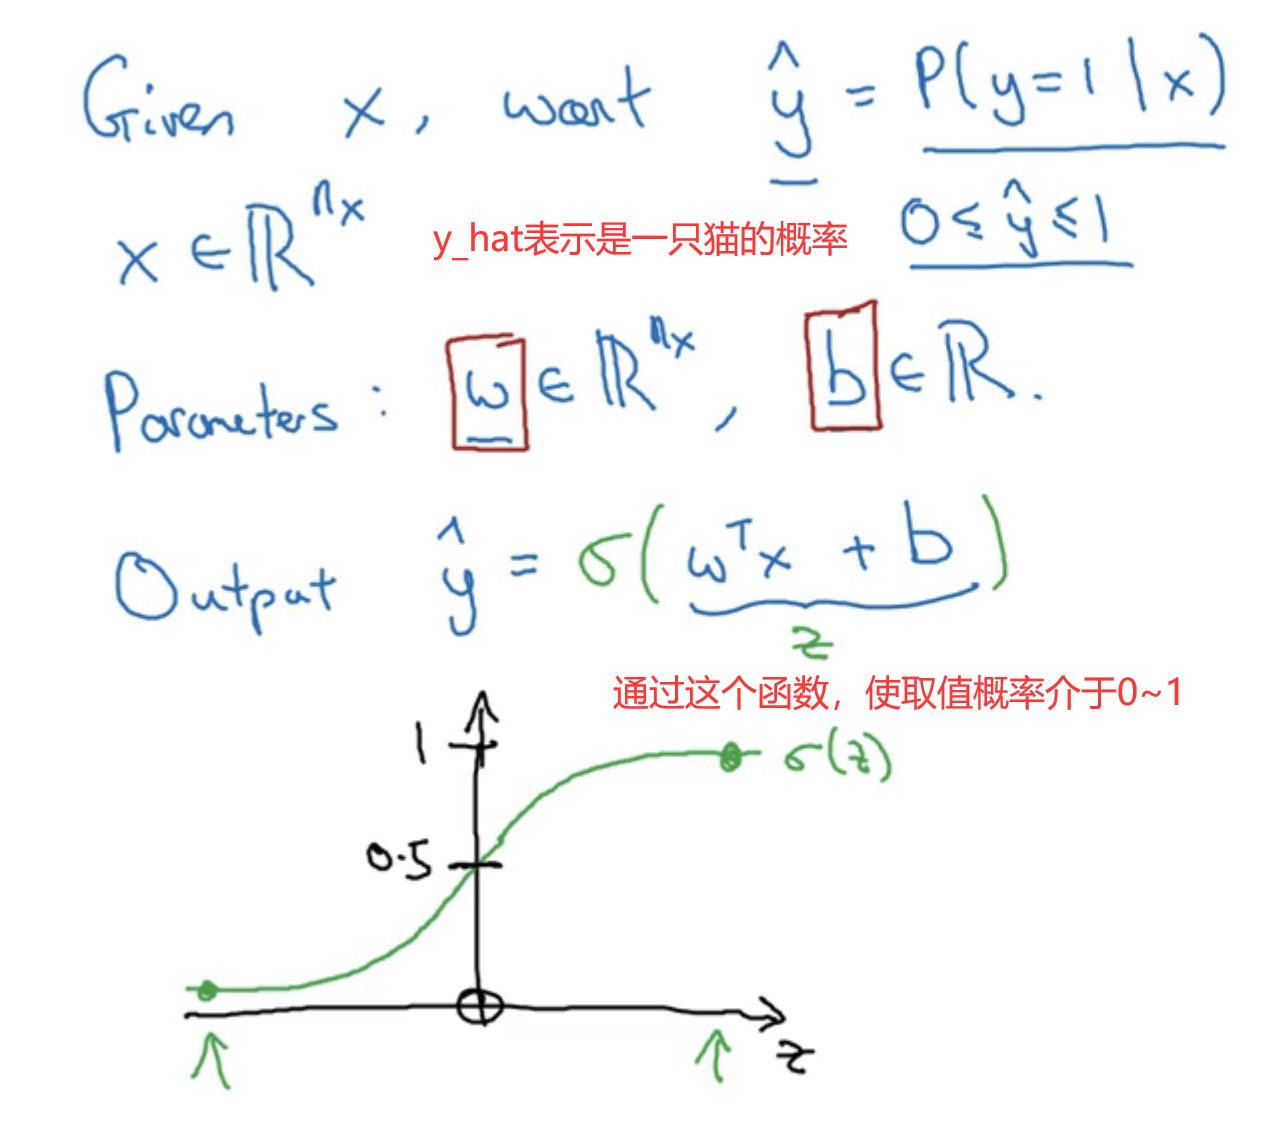 Given x, want ŷ = P(y=1|x)
x ∈ ℝ^{n_x} y_hat表示是一只猫的概率 0 ≤ ŷ ≤ 1
Parameters: w ∈ ℝ^{n_x}, b ∈ ℝ.
Output ŷ = σ(w^T x + b)
z
通过这个函数，使取值概率介于0~1
1
σ(z)
0.5
z